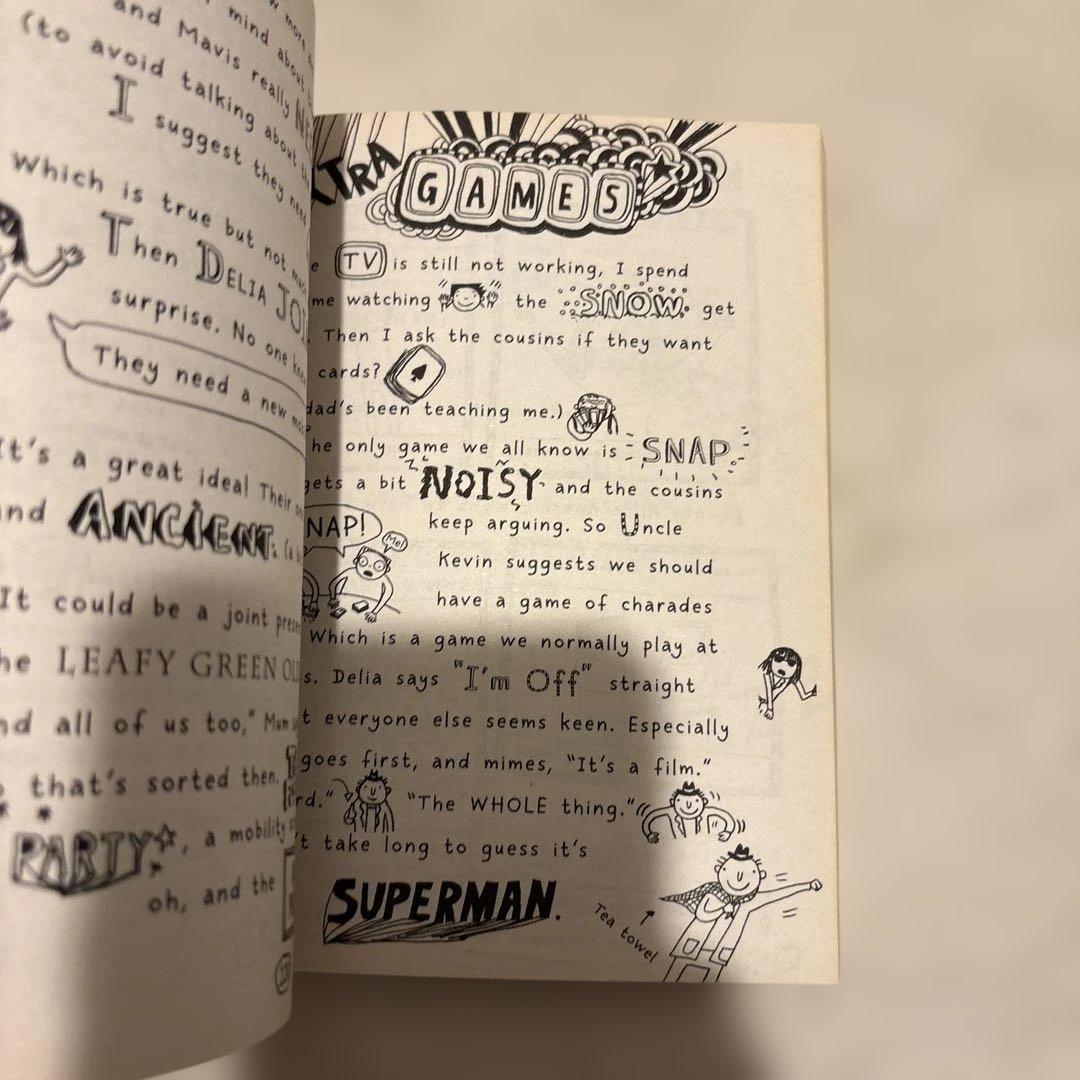 more
mind about
and Mavis really
(to avoid talking about
I suggest they need
Which is true but not
Then DELIA
surprise. No one
They need a new
It's a great idea! Their
and ANCiENT.
It could be a joint
the LEAFY GREEN
and all of us too," Mum
that's sorted then.
PARTY, a mobility
oh, and the
GAMES
TV is still not working, I spend
watching the SNOW get
Then I ask the cousins if they want
cards?
dad's been teaching me.)
only game we all know is SNAP.
gets a bit NOISY and the cousins
keep arguing. So Uncle
NAP!
Me!
Kevin suggests we should
have a game of charades
Which is a game we normally play at
Delia says "I'm Off" straight
everyone else seems keen. Especially
goes first, and mimes, "It's a film."
"The WHOLE thing."
take long to guess it's
SUPERMAN.
Tea towel